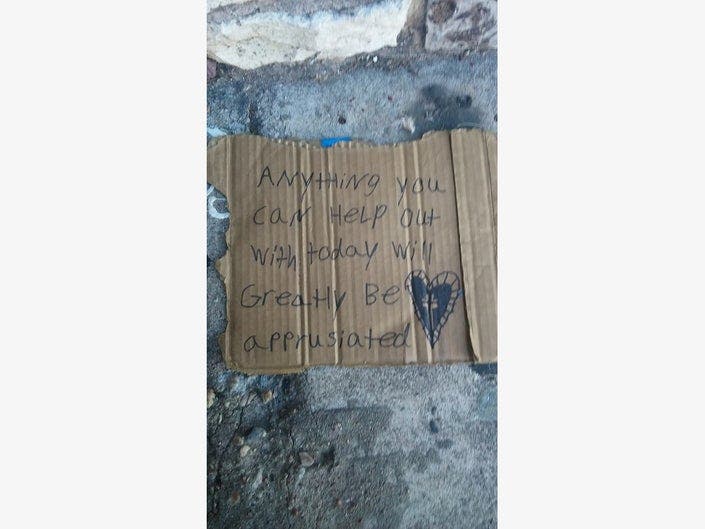 ANYtHiNg you
CAN HELP Out
With today Will
Greatly Be
apprusiated